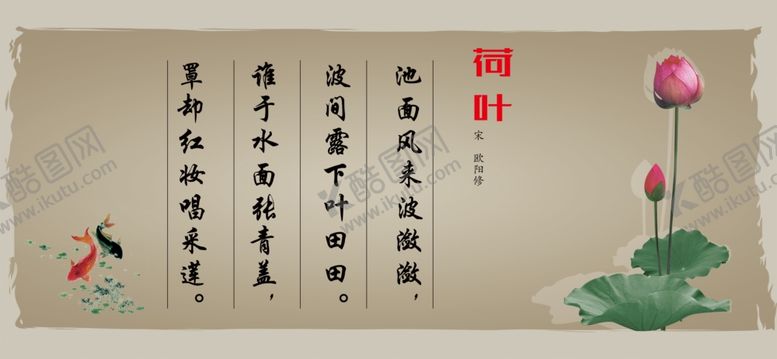 荷叶
宋 欧阳修
池面风来波潋潋，
波间露下叶田田。
谁于水面张青盖，
罩却红妆唱采莲。
酷图网
www.ikutu.com